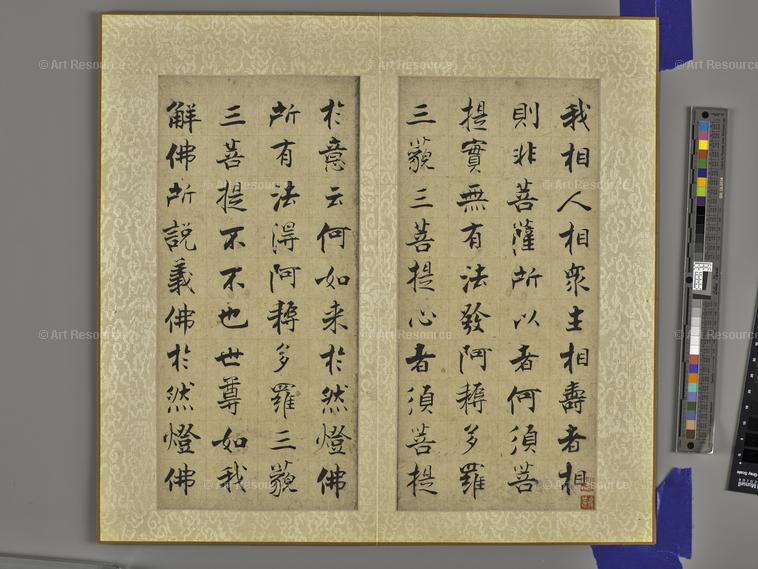 我相人相衆生相壽者相
則非菩薩所以者何須菩
提實無有法發阿耨多羅
三藐三菩提心者須菩提
於意云何如来於然燈佛
所有法得阿耨多羅三藐
三菩提不不也世尊如我
解佛所説義佛於然燈佛
© Art Resource